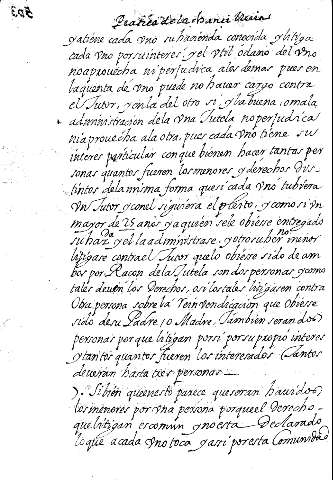 Pratica de la Chancí llería
ya tiene cada vno su hacienda conocida y litiga
cada vno por su interes y el vtil o daño del vno
no aprovecha ni perjudica a los demas pues en
la quenta de vno puede no haver cargo contra
el Tutor, y en la del otro si y la buena, o mala
administracion de la vna Tutela no perjudica
ni aprovecha a la otra, pues cada vno tiene su
interes particular con que bienen hacer tantas per
sonas quantos fueren los menores, y derechos dis-
tintos de la misma forma que si cada vno tubiera
vn Tutor, y con el siguiera el pleito, y como si vn
mayor de 25 años y a quien se le obiese entregado
su haz.da y el la administrase, y otro su her.no menor
litigase contra el Tutor que lo obiese sido de am
bos por Raçon de la Tutela son dos personas y como
tales deuen los Derechos, o si los tales litigasen contra
Otra persona sobre la Reinvendicacion que obiese
sido de su Padre, o Madre, Tambien seran dos
personas porque litigan por si por su propio interes
y tantos quantos fueren los interesados Tantos
deveran hasta tres personas
Si bien que en esto parece que seran havidos
los menores por vna persona porque el Derecho
que litigan es comun y no esta Declarado
lo que a cada vno toca y asi por esta Comunidad